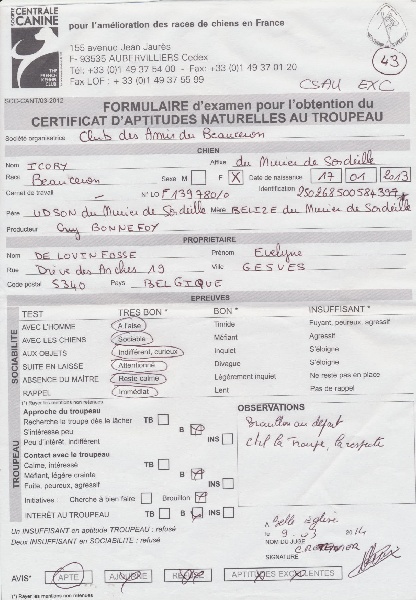 CENTRALE
CANINE
pour l'amélioration des races de chiens en France
155 avenue Jean Jaurès
F- 93535 AUBERVILLIERS Cedex
Tél: +33 (0)1 49 37 54 00 - Fax: +33 (0)1 49 37 01 20
Fax LOF : +33 (0)1 49 37 55 99
THE FRENCH KENNEL CLUB
43
CSAU EXC
SCC-CANT/03-2012
FORMULAIRE d'examen pour l'obtention du
CERTIFICAT D'APTITUDES NATURELLES AU TROUPEAU
Société organisatrice Club des Amis du Beauceron
CHIEN
Nom ICORY Affixe du Murier de Sordeille
Race Beauceron Sexe M F X Date de naissance 17 01 2013
Carnet de travail — N° LO F 139780/0 Identification
Père UDSON du Murier de Sordeille Mère BELIZE du Murier de Sordeille
Producteur Guy BONNEFOY
PROPRIETAIRE
Nom DE LOVINFOSSE Prénom Evelyne
Rue Drève des Arches 19 Ville GESVES
Code postal 5340 Pays BELGIQUE
EPREUVES
SOCIABILITE
TEST TRES BON * BON * INSUFFISANT *
AVEC L'HOMME A l'aise Timide Fuyant, peureux, agressif
AVEC LES CHIENS Sociable Méfiant Agressif
AUX OBJETS Indifférent, curieux Inquiet S'éloigne
SUITE EN LAISSE Attentionné Divague S'éloigne
ABSENCE DU MAÎTRE Reste calme Légèrement inquiet Ne reste pas en place
RAPPEL Immédiat Lent Pas de rappel
(*) Rayer les mentions non retenues
TROUPEAU
Approche du troupeau
Recherche la troupe dès le lâcher TB
S'intéresse peu B
Peu d'intérêt, indifférent INS
Contact avec le troupeau
Calme, intéressé TB
Méfiant, légère crainte B
Fuite, peureux, agressif INS
Initiatives : Cherche à bien faire Brouillon
INTERÊT AU TROUPEAU TB B INS
OBSERVATIONS
Brouillon au départ
la troupe, la respecte
Un INSUFFISANT en aptitude TROUPEAU : refusé
Deux INSUFFISANT en SOCIABILITE : refusé
A Belle église
le 9.03 2014
NOM DU JUGE
SIGNATURE
AVIS* APTE AJOURNE REFUSE APTITUDES EXCELLENTES
(*) Rayer les mentions non retenues